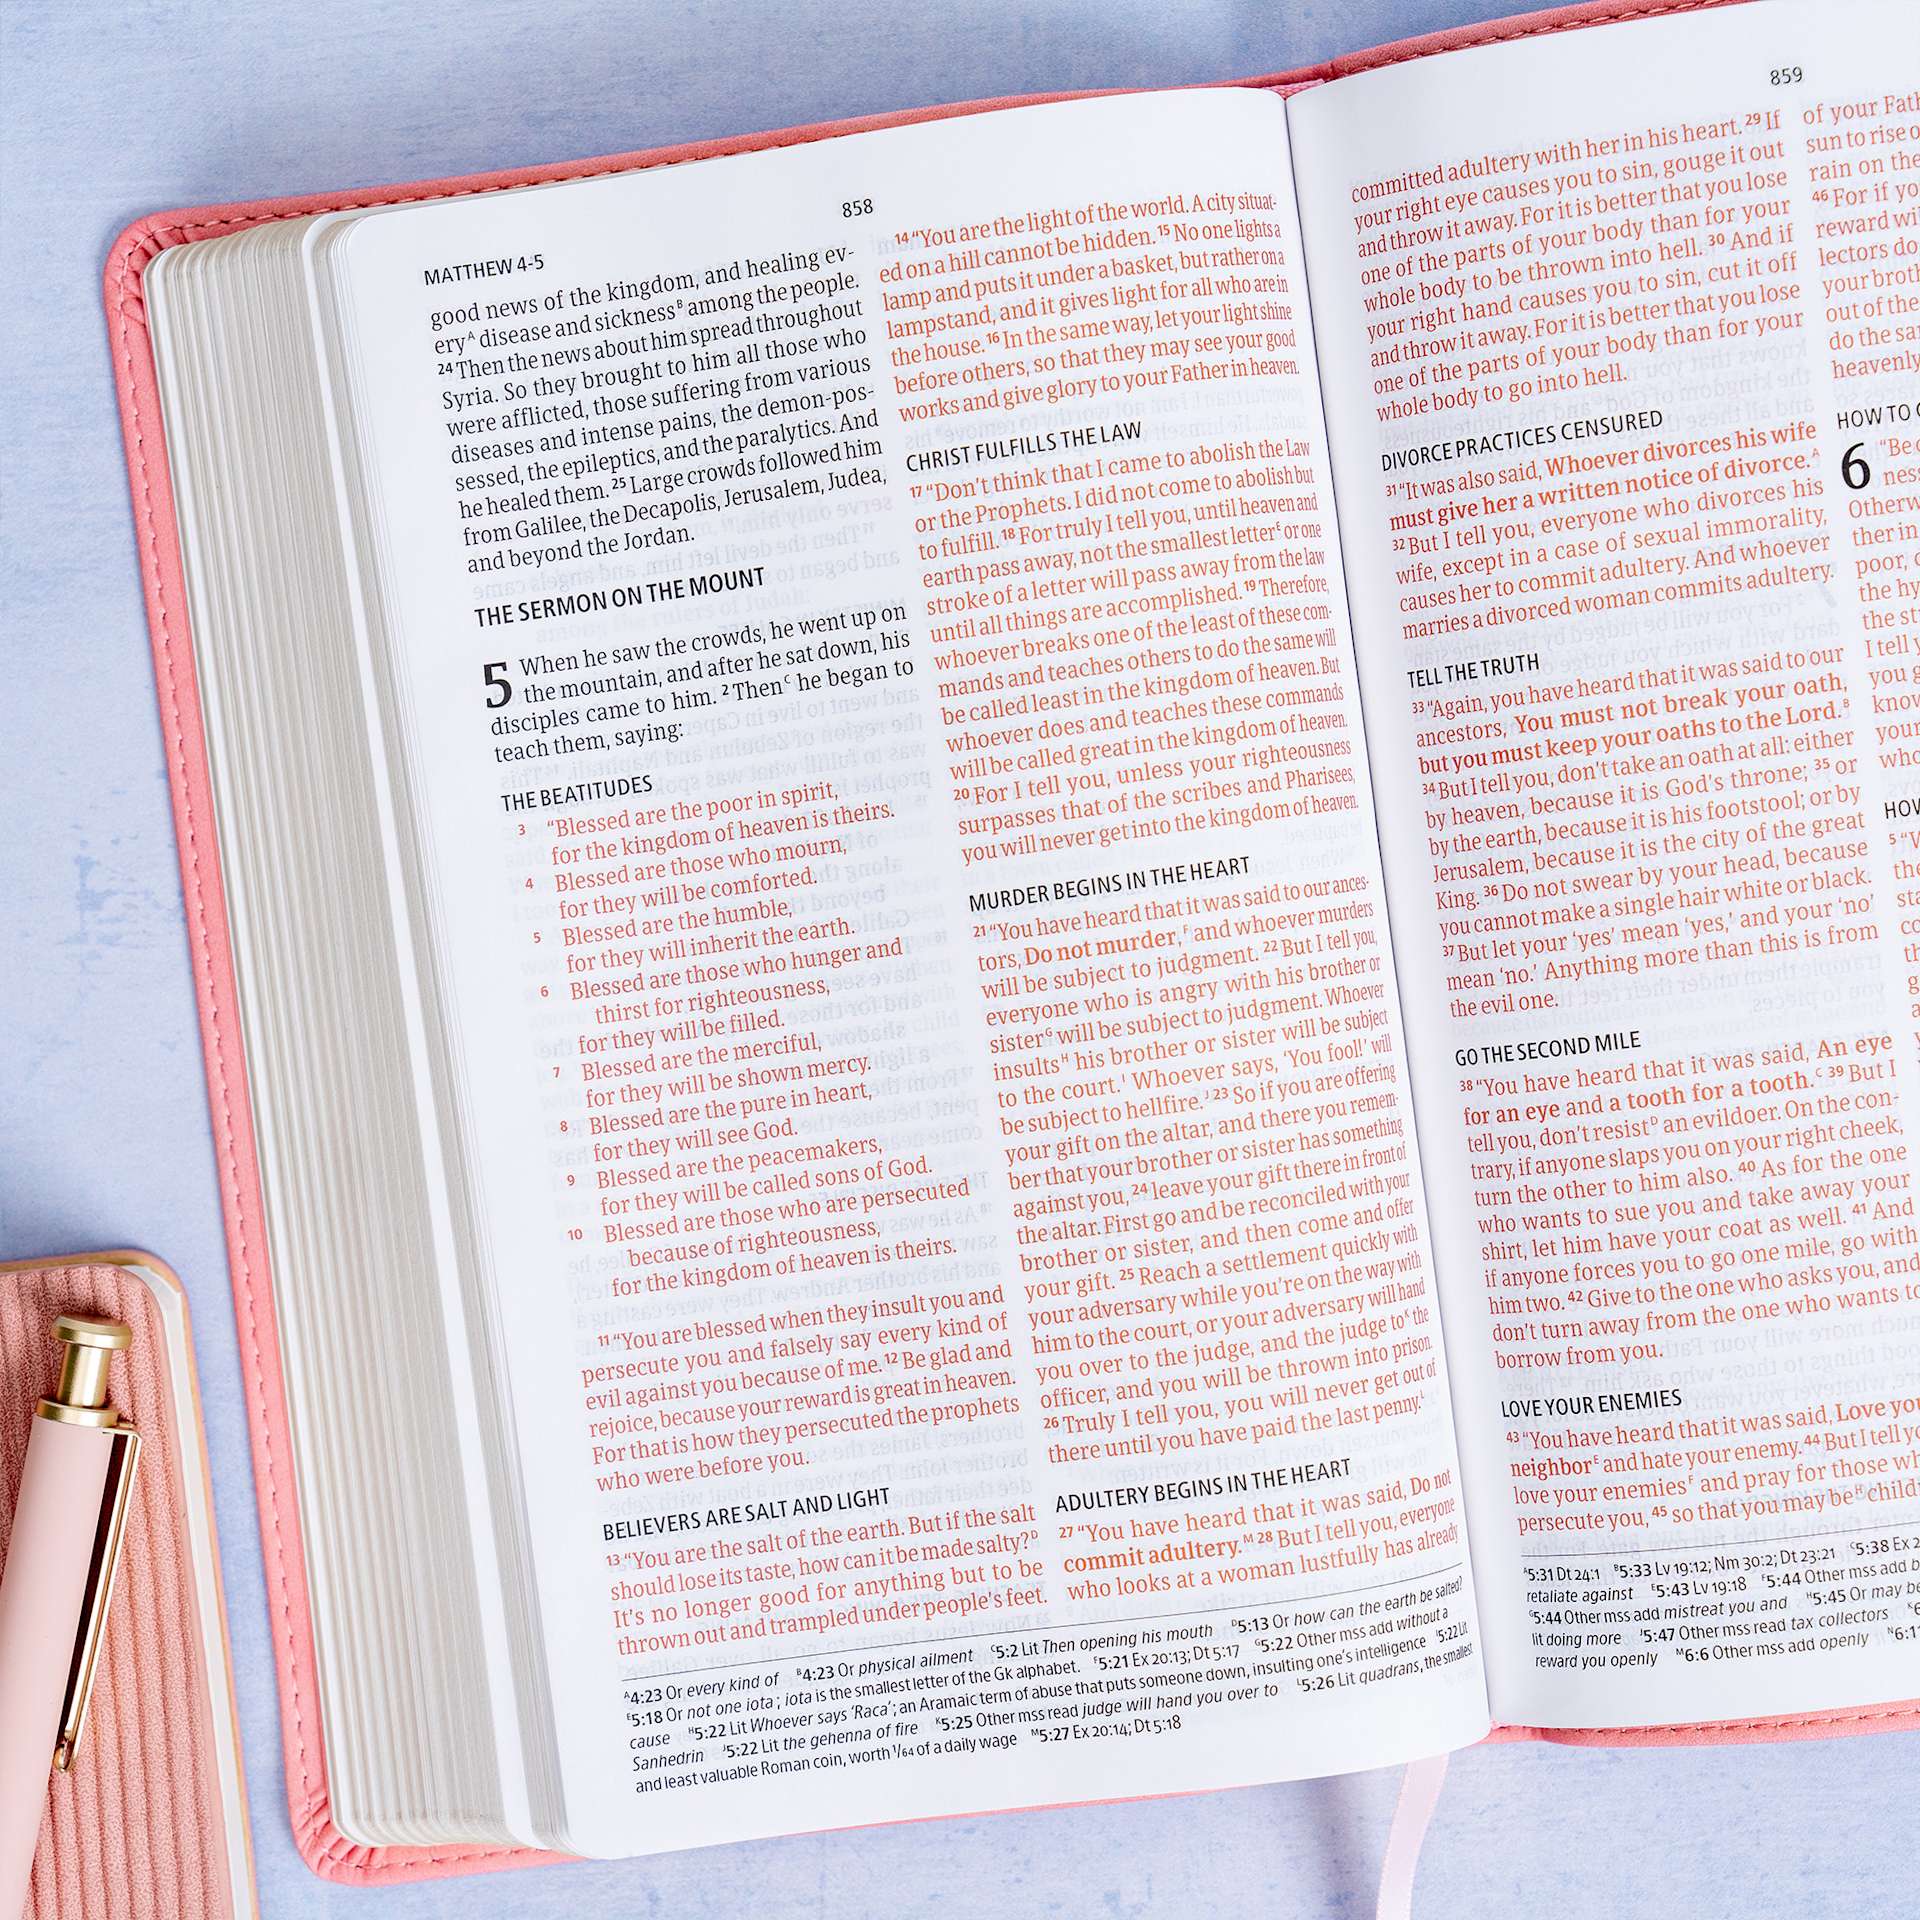 858
MATTHEW 4-5
good news of the kingdom, and healing ev-
eryᴬ disease and sicknessᴮ among the people.
24 Then the news about him spread throughout
Syria. So they brought to him all those who
were afflicted, those suffering from various
diseases and intense pains, the demon-pos-
sessed, the epileptics, and the paralytics. And
he healed them. 25 Large crowds followed him
from Galilee, the Decapolis, Jerusalem, Judea,
and beyond the Jordan.
THE SERMON ON THE MOUNT
5 When he saw the crowds, he went up on
the mountain, and after he sat down, his
disciples came to him. 2 Thenᶜ he began to
teach them, saying:
THE BEATITUDES
3 “Blessed are the poor in spirit,
for the kingdom of heaven is theirs.
4 Blessed are those who mourn,
for they will be comforted.
5 Blessed are the humble,
for they will inherit the earth.
6 Blessed are those who hunger and
thirst for righteousness,
for they will be filled.
7 Blessed are the merciful,
for they will be shown mercy.
8 Blessed are the pure in heart,
for they will see God.
9 Blessed are the peacemakers,
for they will be called sons of God.
10 Blessed are those who are persecuted
because of righteousness,
for the kingdom of heaven is theirs.
11 “You are blessed when they insult you and
persecute you and falsely say every kind of
evil against you because of me. 12 Be glad and
rejoice, because your reward is great in heaven.
For that is how they persecuted the prophets
who were before you.
BELIEVERS ARE SALT AND LIGHT
13 “You are the salt of the earth. But if the salt
should lose its taste, how can it be made salty?ᴰ
It’s no longer good for anything but to be
thrown out and trampled under people’s feet.
14 “You are the light of the world. A city situat-
ed on a hill cannot be hidden. 15 No one lights a
lamp and puts it under a basket, but rather on a
lampstand, and it gives light for all who are in
the house. 16 In the same way, let your light shine
before others, so that they may see your good
works and give glory to your Father in heaven.
CHRIST FULFILLS THE LAW
17 “Don’t think that I came to abolish the Law
or the Prophets. I did not come to abolish but
to fulfill. 18 For truly I tell you, until heaven and
earth pass away, not the smallest letterᴱ or one
stroke of a letter will pass away from the law
until all things are accomplished. 19 Therefore,
whoever breaks one of the least of these com-
mands and teaches others to do the same will
be called least in the kingdom of heaven. But
whoever does and teaches these commands
will be called great in the kingdom of heaven.
20 For I tell you, unless your righteousness
surpasses that of the scribes and Pharisees,
you will never get into the kingdom of heaven.
MURDER BEGINS IN THE HEART
21 “You have heard that it was said to our ances-
tors, Do not murder,ꟳ and whoever murders
will be subject to judgment. 22 But I tell you,
everyone who is angry with his brother or
sisterᴳ will be subject to judgment. Whoever
insultsᴴ his brother or sister will be subject
to the court.ᴵ Whoever says, ‘You fool!’ will
be subject to hellfire.ᴶ 23 So if you are offering
your gift on the altar, and there you remem-
ber that your brother or sister has something
against you, 24 leave your gift there in front of
the altar. First go and be reconciled with your
brother or sister, and then come and offer
your gift. 25 Reach a settlement quickly with
your adversary while you’re on the way with
him to the court, or your adversary will hand
you over to the judge, and the judge toᴷ the
officer, and you will be thrown into prison.
26 Truly I tell you, you will never get out of
there until you have paid the last penny.ᴸ
ADULTERY BEGINS IN THE HEART
27 “You have heard that it was said, Do not
commit adultery.ᴹ 28 But I tell you, everyone
who looks at a woman lustfully has already
ᴬ4:23 Or every kind of ᴮ4:23 Or physical ailment ᶜ5:2 Lit Then opening his mouth ᴰ5:13 Or how can the earth be salted?
ᴱ5:18 Or not one iota ; iota is the smallest letter of the Gk alphabet. ꟳ5:21 Ex 20:13; Dt 5:17 ᴳ5:22 Other mss add without a
cause ᴴ5:22 Lit Whoever says ‘Raca’; an Aramaic term of abuse that puts someone down, insulting one’s intelligence ᴵ5:22 Lit
Sanhedrin ᴶ5:22 Lit the gehenna of fire ᴷ5:25 Other mss read judge will hand you over to ᴸ5:26 Lit quadrans, the smallest
and least valuable Roman coin, worth 1/64 of a daily wage ᴹ5:27 Ex 20:14; Dt 5:18
859
committed adultery with her in his heart. 29 If
your right eye causes you to sin, gouge it out
and throw it away. For it is better that you lose
one of the parts of your body than for your
whole body to be thrown into hell. 30 And if
your right hand causes you to sin, cut it off
and throw it away. For it is better that you lose
one of the parts of your body than for your
whole body to go into hell.
DIVORCE PRACTICES CENSURED
31 “It was also said, Whoever divorces his wife
must give her a written notice of divorce.ᴬ
32 But I tell you, everyone who divorces his
wife, except in a case of sexual immorality,
causes her to commit adultery. And whoever
marries a divorced woman commits adultery.
TELL THE TRUTH
33 “Again, you have heard that it was said to our
ancestors, You must not break your oath,
but you must keep your oaths to the Lord.ᴮ
34 But I tell you, don’t take an oath at all: either
by heaven, because it is God’s throne; 35 or
by the earth, because it is his footstool; or by
Jerusalem, because it is the city of the great
King. 36 Do not swear by your head, because
you cannot make a single hair white or black.
37 But let your ‘yes’ mean ‘yes,’ and your ‘no’
mean ‘no.’ Anything more than this is from
the evil one.
GO THE SECOND MILE
38 “You have heard that it was said, An eye
for an eye and a tooth for a tooth.ᶜ 39 But I
tell you, don’t resistᴰ an evildoer. On the con-
trary, if anyone slaps you on your right cheek,
turn the other to him also. 40 As for the one
who wants to sue you and take away your
shirt, let him have your coat as well. 41 And
if anyone forces you to go one mile, go with
him two. 42 Give to the one who asks you, and
don’t turn away from the one who wants to
borrow from you.
LOVE YOUR ENEMIES
43 “You have heard that it was said, Love you
neighborᴱ and hate your enemy. 44 But I tell yo
love your enemiesꟳ and pray for those wh
persecute you, 45 so that you may beᴴ child
of your Fath
sun to rise o
rain on the
46 For if yo
reward wi
lectors do
your broth
out of the
do the sa
heavenly
HOW TO
6 “Be c
ness
Otherw
ther in
poor,
the hy
the st
I tell y
you g
know
your
who
HOW
5 “W
the
sta
co
th
g
a
ᴬ5:31 Dt 24:1 ᴮ5:33 Lv 19:12; Nm 30:2; Dt 23:21 ᶜ5:38 Ex 2
retaliate against ᴱ5:43 Lv 19:18 ꟳ5:44 Other mss add b
ᴳ5:44 Other mss add mistreat you and ᴴ5:45 Or may be
lit doing more ᴶ5:47 Other mss read tax collectors
reward you openly ᴹ6:6 Other mss add openly ᴺ6:11